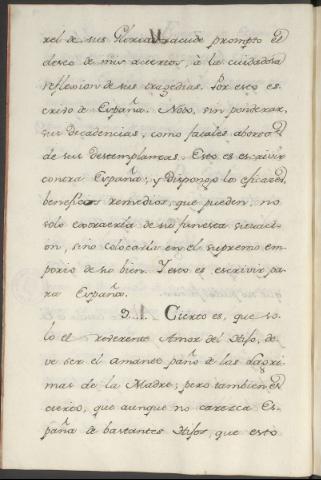 rel de sus Glorias acude prompto el
deseo de mis aciertos, à la cuidadosa
reflexion de sus tragedias. Por esto es-
crivo de España. Noto, sin ponderar,
sus decadencias, como fatales abortos
de sus destemplanzas. Esto es escrivir
contra España; y Dispongo los eficaces,
beneficos remedios, que pueden, no
solo extraerla de su funesta situaci-
on, sino colocarla en el supremo em-
porio de su bien. Y esto es, escrivir pa-
ra España.
Cierto es, que so-
lo el reverente Amor del Hijo, de-
ve ser el amante paño de las Lagri-
mas de la Madre; pero tambien es
cierto, que aunque no carezca Es-
paña de bastantes Hijos, que esto